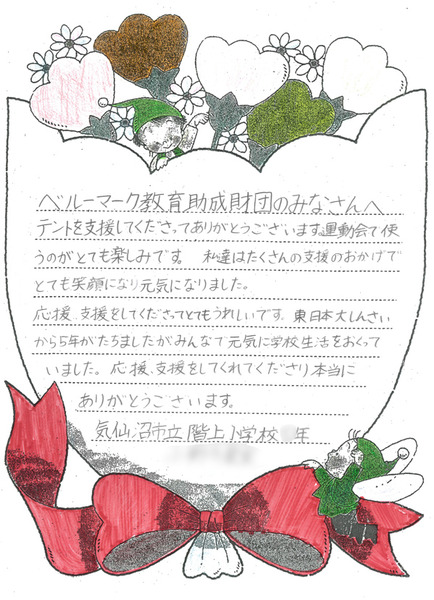 ベルーマーク教育助成財団のみなさんへ
テントを支援してくださってありがとうございます。運動会で使
うのがとても楽しみです。 私達はたくさんの支援のおかげで
とても笑顔になり元気になりました。
応援、支援をしてくださってとてもうれしいです。東日本大しんさい
から5年がたちましたがみんなで元気に学校生活をおくって
いました。応援、支援をしてくれてくださり本当に
ありがとうございます。
気仙沼市立階上小学校 年